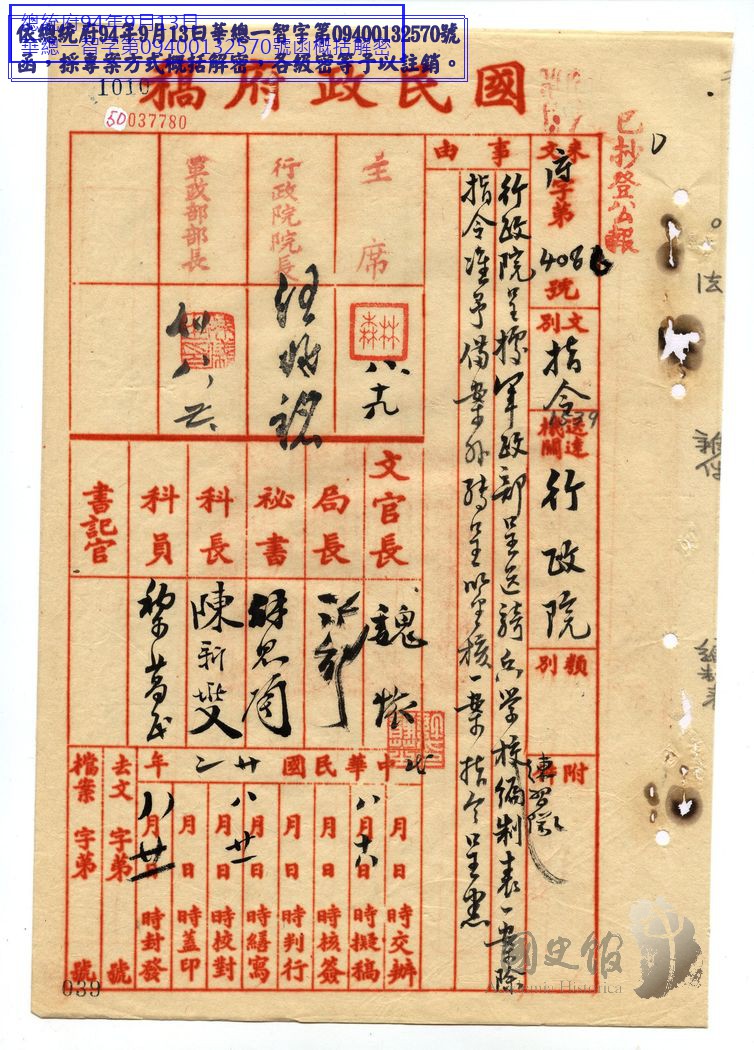 總統府94年9月13日
華總一智字第09400132570號函概括解密
依總統府94年9月13日華總一智字第09400132570號
函，採專案方式概括解密，各級密等予以註銷。
1010
50037780
國民政府稿
已抄登公報
來文 府字第 408 號
文別 指令
送達機關 行政院
類別
附
事由
行政院呈據軍政部呈送騎兵學校編制表一案除
指令准予備案外轉呈鑒核一案指令呈悉
主席
林森
行政院院長
汪兆銘
軍政部部長
文官長
魏懷
局長
秘書
許思園
科長
陳新燮
科員
黎萬民
書記官
中華民國廿二年
月日時交辦
八月十六日時擬稿
月日時核簽
月日時判行
月日時繕寫
八月廿一日時校對
月日時蓋印
八月廿一日時封發
去文 字第 號
檔案 字第 號
039
國史館
Academia Historica